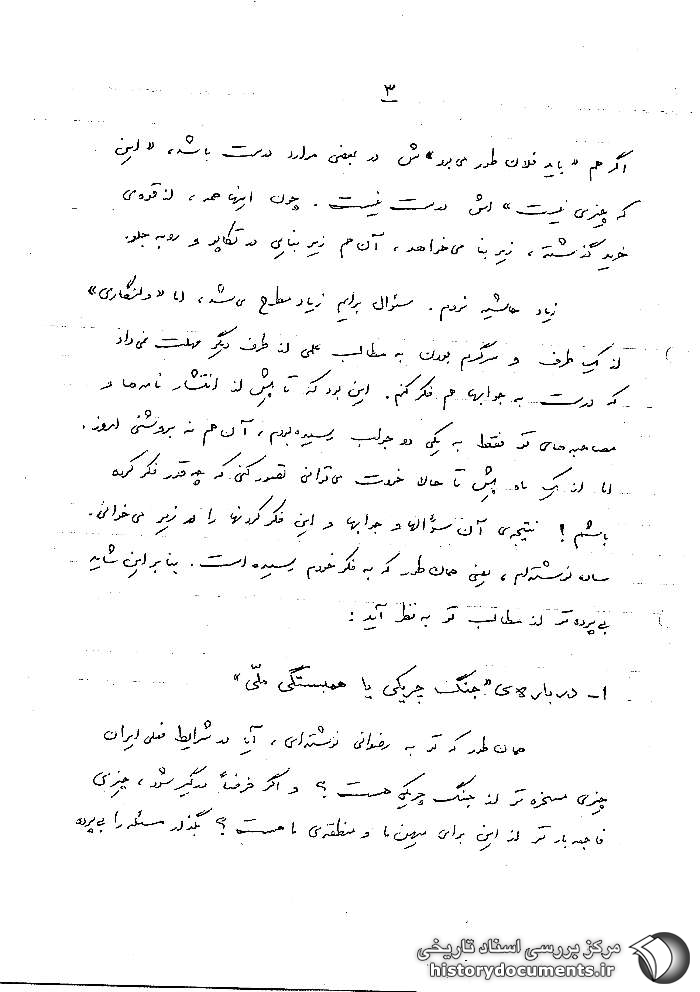 ۳
اگر هم «باید فلان طور می‌بود»ش در بعضی موارد درست باشد، «این
که چیزی نیست» اش درست نیست. چون اینها همه، از قوه‌ی
خرید گذشته، زیر بنا می‌خواهد، آن هم زیر بنایی در تکاپو و رو به جلو.
زیاد حاشیه نروم. سئوال برایم زیاد مطرح می‌شد، اما «ولنگاری»
از یک طرف و سرگرم بودن به مطالب علمی از طرف دیگر مهلت نمی‌داد
که درست به جوابها هم فکر کنم. این بود که تا پیش از انتشار نامه‌ها و
مصاحبه‌های تو فقط به یکی دو جواب رسیده بودم، آن هم نه بروشنی امروز.
اما از یک ماه پیش تا حالا خودت می‌توانی تصور کنی که چه قدر فکر کرده
باشم! نتیجه‌ی آن سؤالها و جوابها و این فکر کردنها را در زیر می‌خوانی.
ساده نوشته‌ام، یعنی همان طور که به فکر خودم رسیده است. بنابراین شاید
بی‌پرده تر از مطالب تو به نظر آید:
۱- درباره‌ی «جنگ چریکی یا همبستگی ملّی»
همان طور که تو به رضوانی نوشته‌ای، آیا در شرایط فعلی ایران
چیزی مسخره تر از جنگ چریکی هست؟ و اگر فرضاً درگیر شود، چیزی
فاجعه بار تر از این برای میهن ما و منطقه‌ی ما هست؟ بگذار مسئله را بی‌پرده
مرکز بررسی اسناد تاریخی
historydocuments.ir